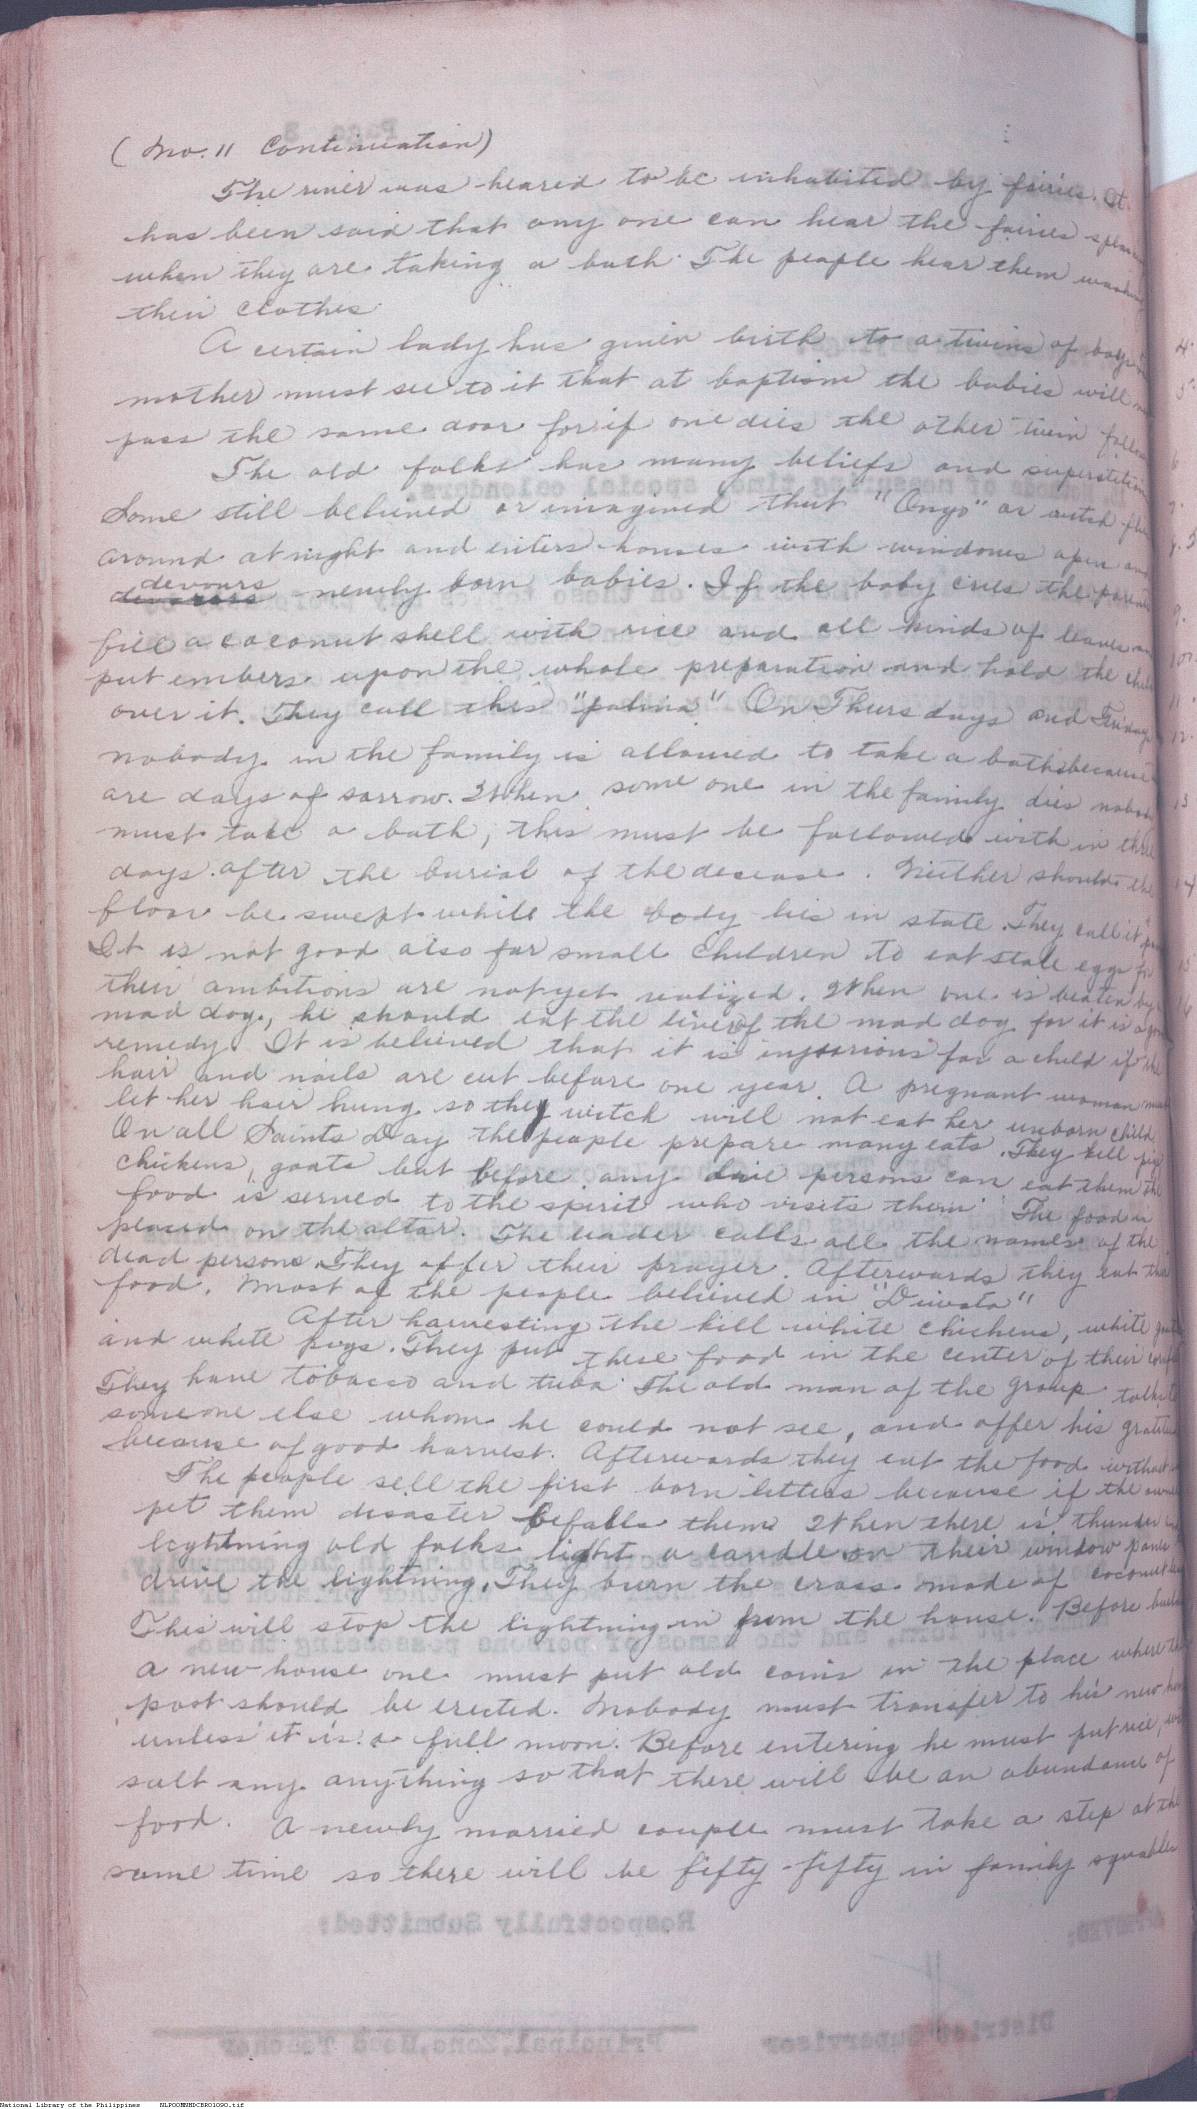 (No. 11 Continuation)
The river was heared to be inhabited by fairies. It
has been said that any one can hear the fairies
when they are taking a bath. The people hear them
their clothes.
A certain lady has given birth to a twins of boys
mother must see to it that at baptism the babies will
pass the same door for if one dies the other twin
The old folks has many beliefs and superstition
Some still believed or imagined that "Ongo" or witch
around at night and enters houses with windows open and
devours newly born babies. If the baby cries the parents
fill a coconut shell with rice and all kinds of leaves and
put embers upon the whole preparation and hold the child
over it. They call this "palina" On Thursdays and Fridays
nobody in the family is allowed to take a bath because
are days of sorrow. When some one in the family dies nobody
must take a bath, this must be followed with in three
days after the burial of the desease. Neither should the
floor be swept while the body lies in state. They call it
It is not good also for small children to eat stale eggs for
their ambitions are not yet realized. When one is beaten by
mad dog, he should eat the liver of the mad dog for it is a
remedy. It is believed that it is injourious for a child if the
hair and nails are cut before one year. A pregnant woman must
let her hair hung so they witch will not eat her unborn child
On all Saints Day the people prepare many eats. They kill pig
chickens, goats but before any live persons can eat them the
food is served to the spirit who visits them. The food is
placed on the altar. The leader calls all the names of the
dead persons. They offer their prayer. Afterwards they eat
food. Most of the people believed in "Diwata"
After harvesting the kill white chickens, white
and white pigs. They put these food in the center of their
They have tobacco and tuba. The old man of the group talks
someone else whom he could not see, and offer his
because of good harvest. Afterwards they eat the food without
The people sell the first born litters because if the
pet them disaster befalls them. When there is thunder
lightning old folks light a candle on their window
drive the lightning. They burn the cross made of coconut
This will stop the lightning in from the house. Before
a new house one must put old coins in the place where
post should be erected. Nobody must transfer to his new
unless it is a full moon. Before entering he must put rice,
salt any anything so that there will be an abundance of
food. A newly married couple must take a step at the
same time so there will be fifty-fifty in family
National Library of the Philippines NLPOOMNHDCBR01090.tif